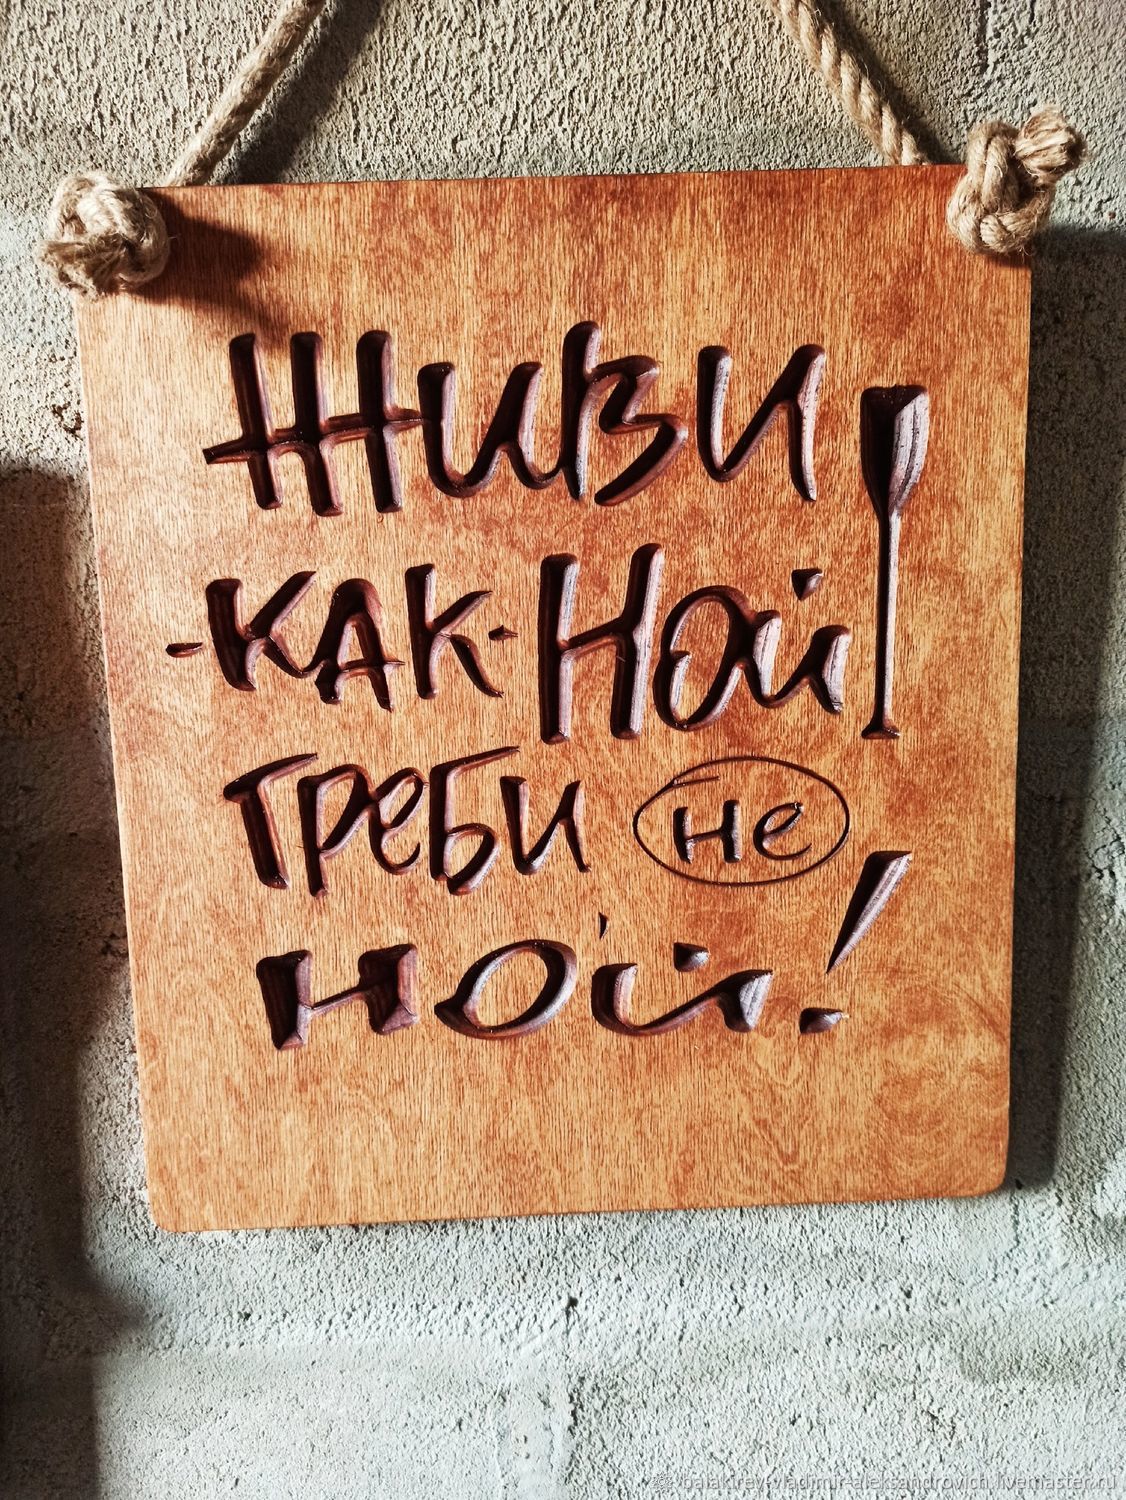 Живи
-как-Ной
греби не
ной!
balakirev-vladimir-aleksandrovich.livemaster.ru